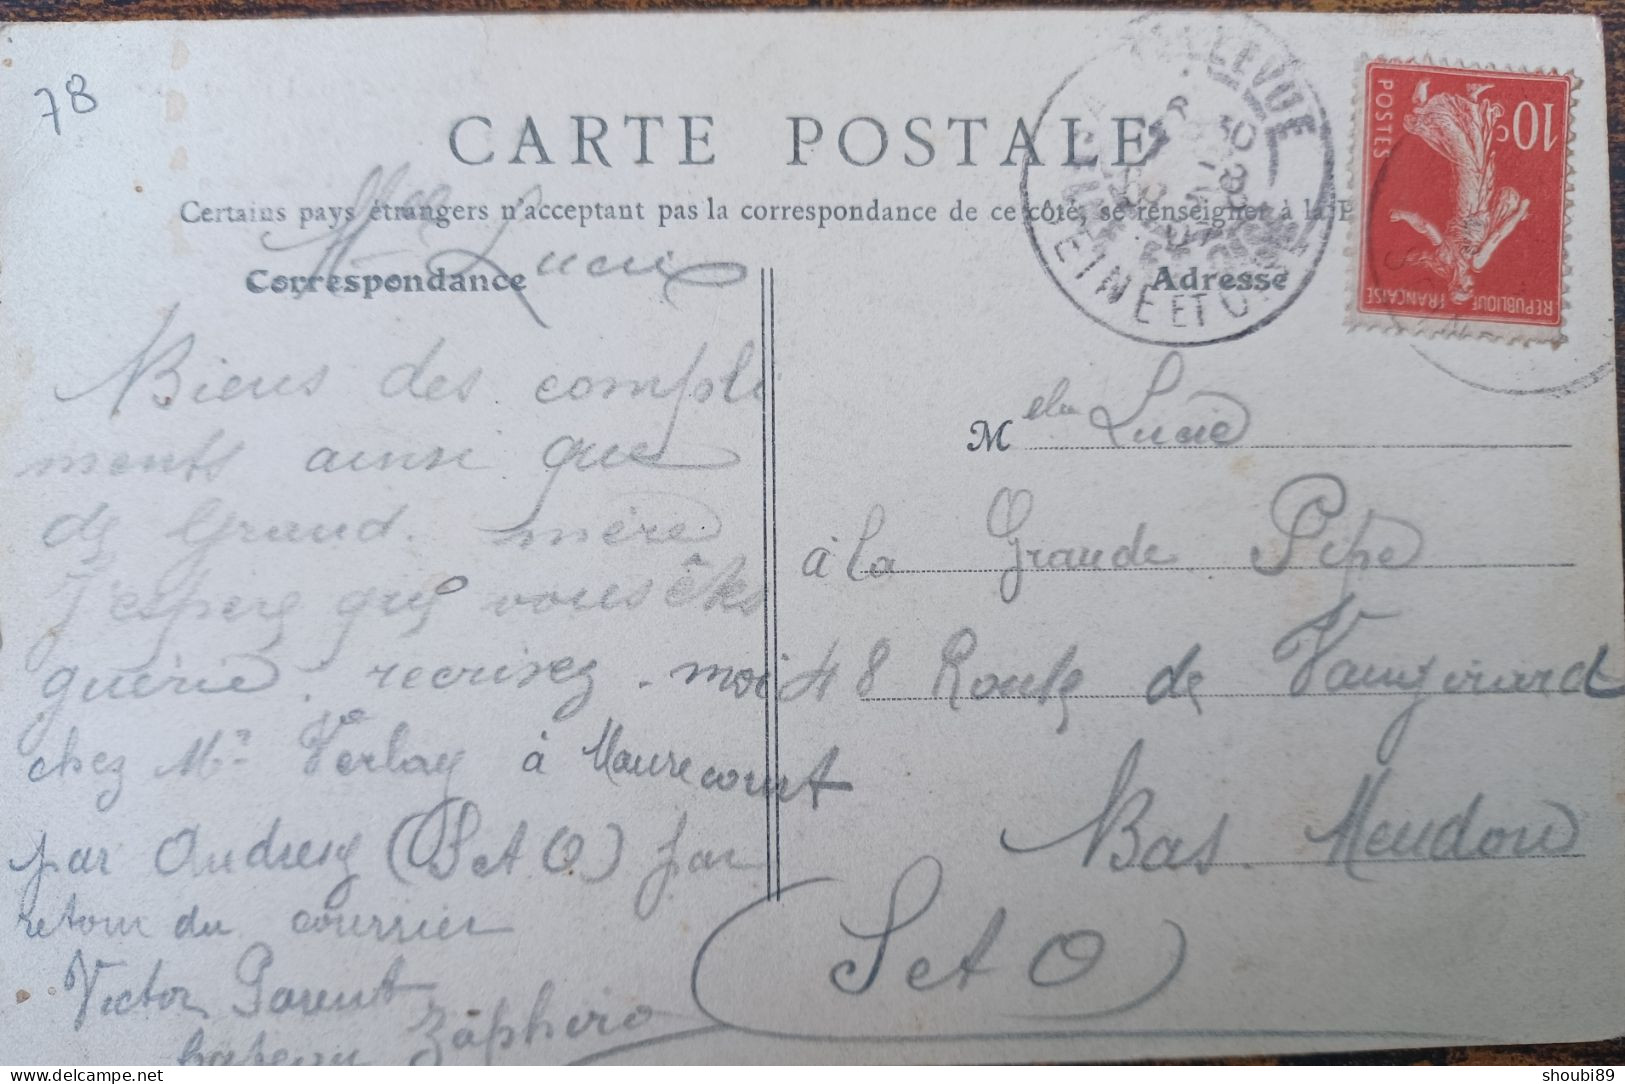 78
CARTE POSTALE
Certains pays étrangers n'acceptent pas la correspondance de ce côté, se renseigner à la P
Correspondance
Adresse
BELLEVUE
SEINE ET OISE
10c
POSTES
REPUBLIQUE FRANÇAISE
Mlle Lucie
Biens des compli
ments ainsi que
de Grand. mère
J'espere que vous êtes
guérie. recrivez. moi
chez Mr Verlay à Maurecourt
par Andresy (S et O) par
retour du courrier
Victor Parent
bateau Zaphiro
M elle Lucie
à la Grande Pipe
48 Route de Vaugirard
Bas. Meudon
(S et O)
shoubi89